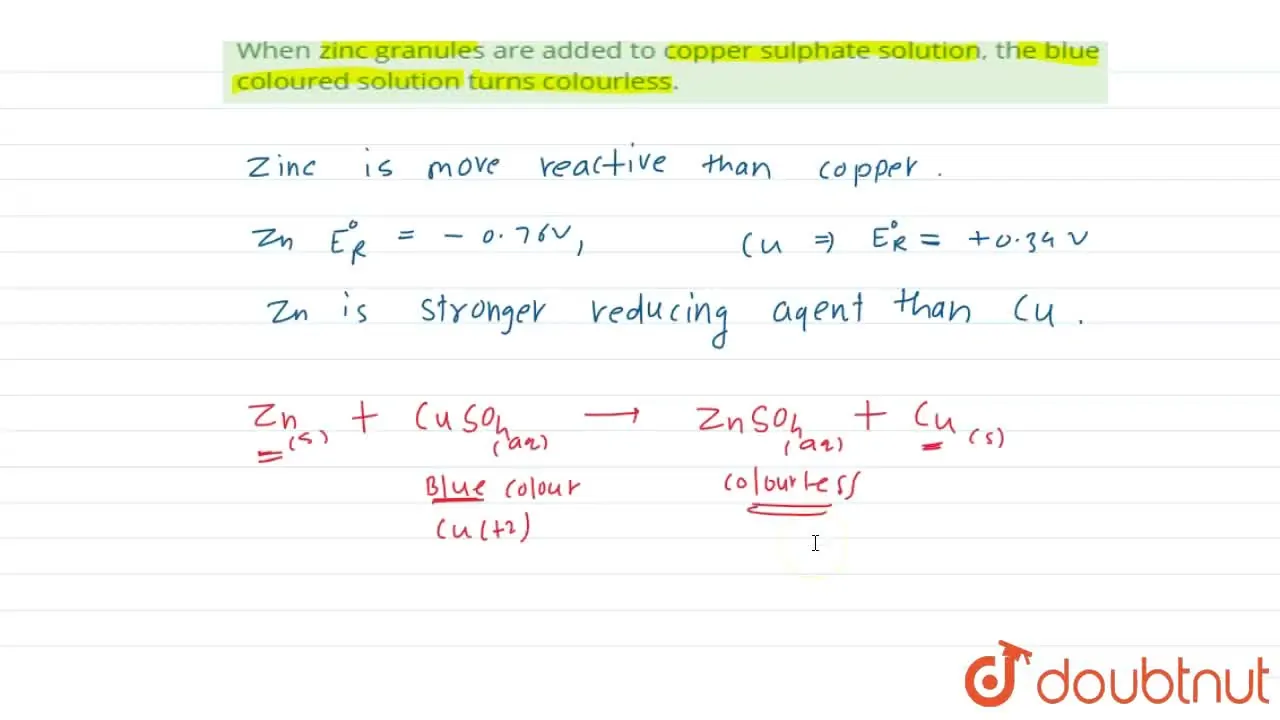 When zinc granules are added to copper sulphate solution, the blue
coloured solution turns colourless.
Zinc is more reactive than copper.
Zn E°R = - 0.76V, Cu ⇒ E°R = +0.34 V
Zn is stronger reducing agent than Cu.
Zn(s) + CuSO4(aq) → ZnSO4(aq) + Cu(s)
Blue colour colourless
Cu(+2)
doubtnut